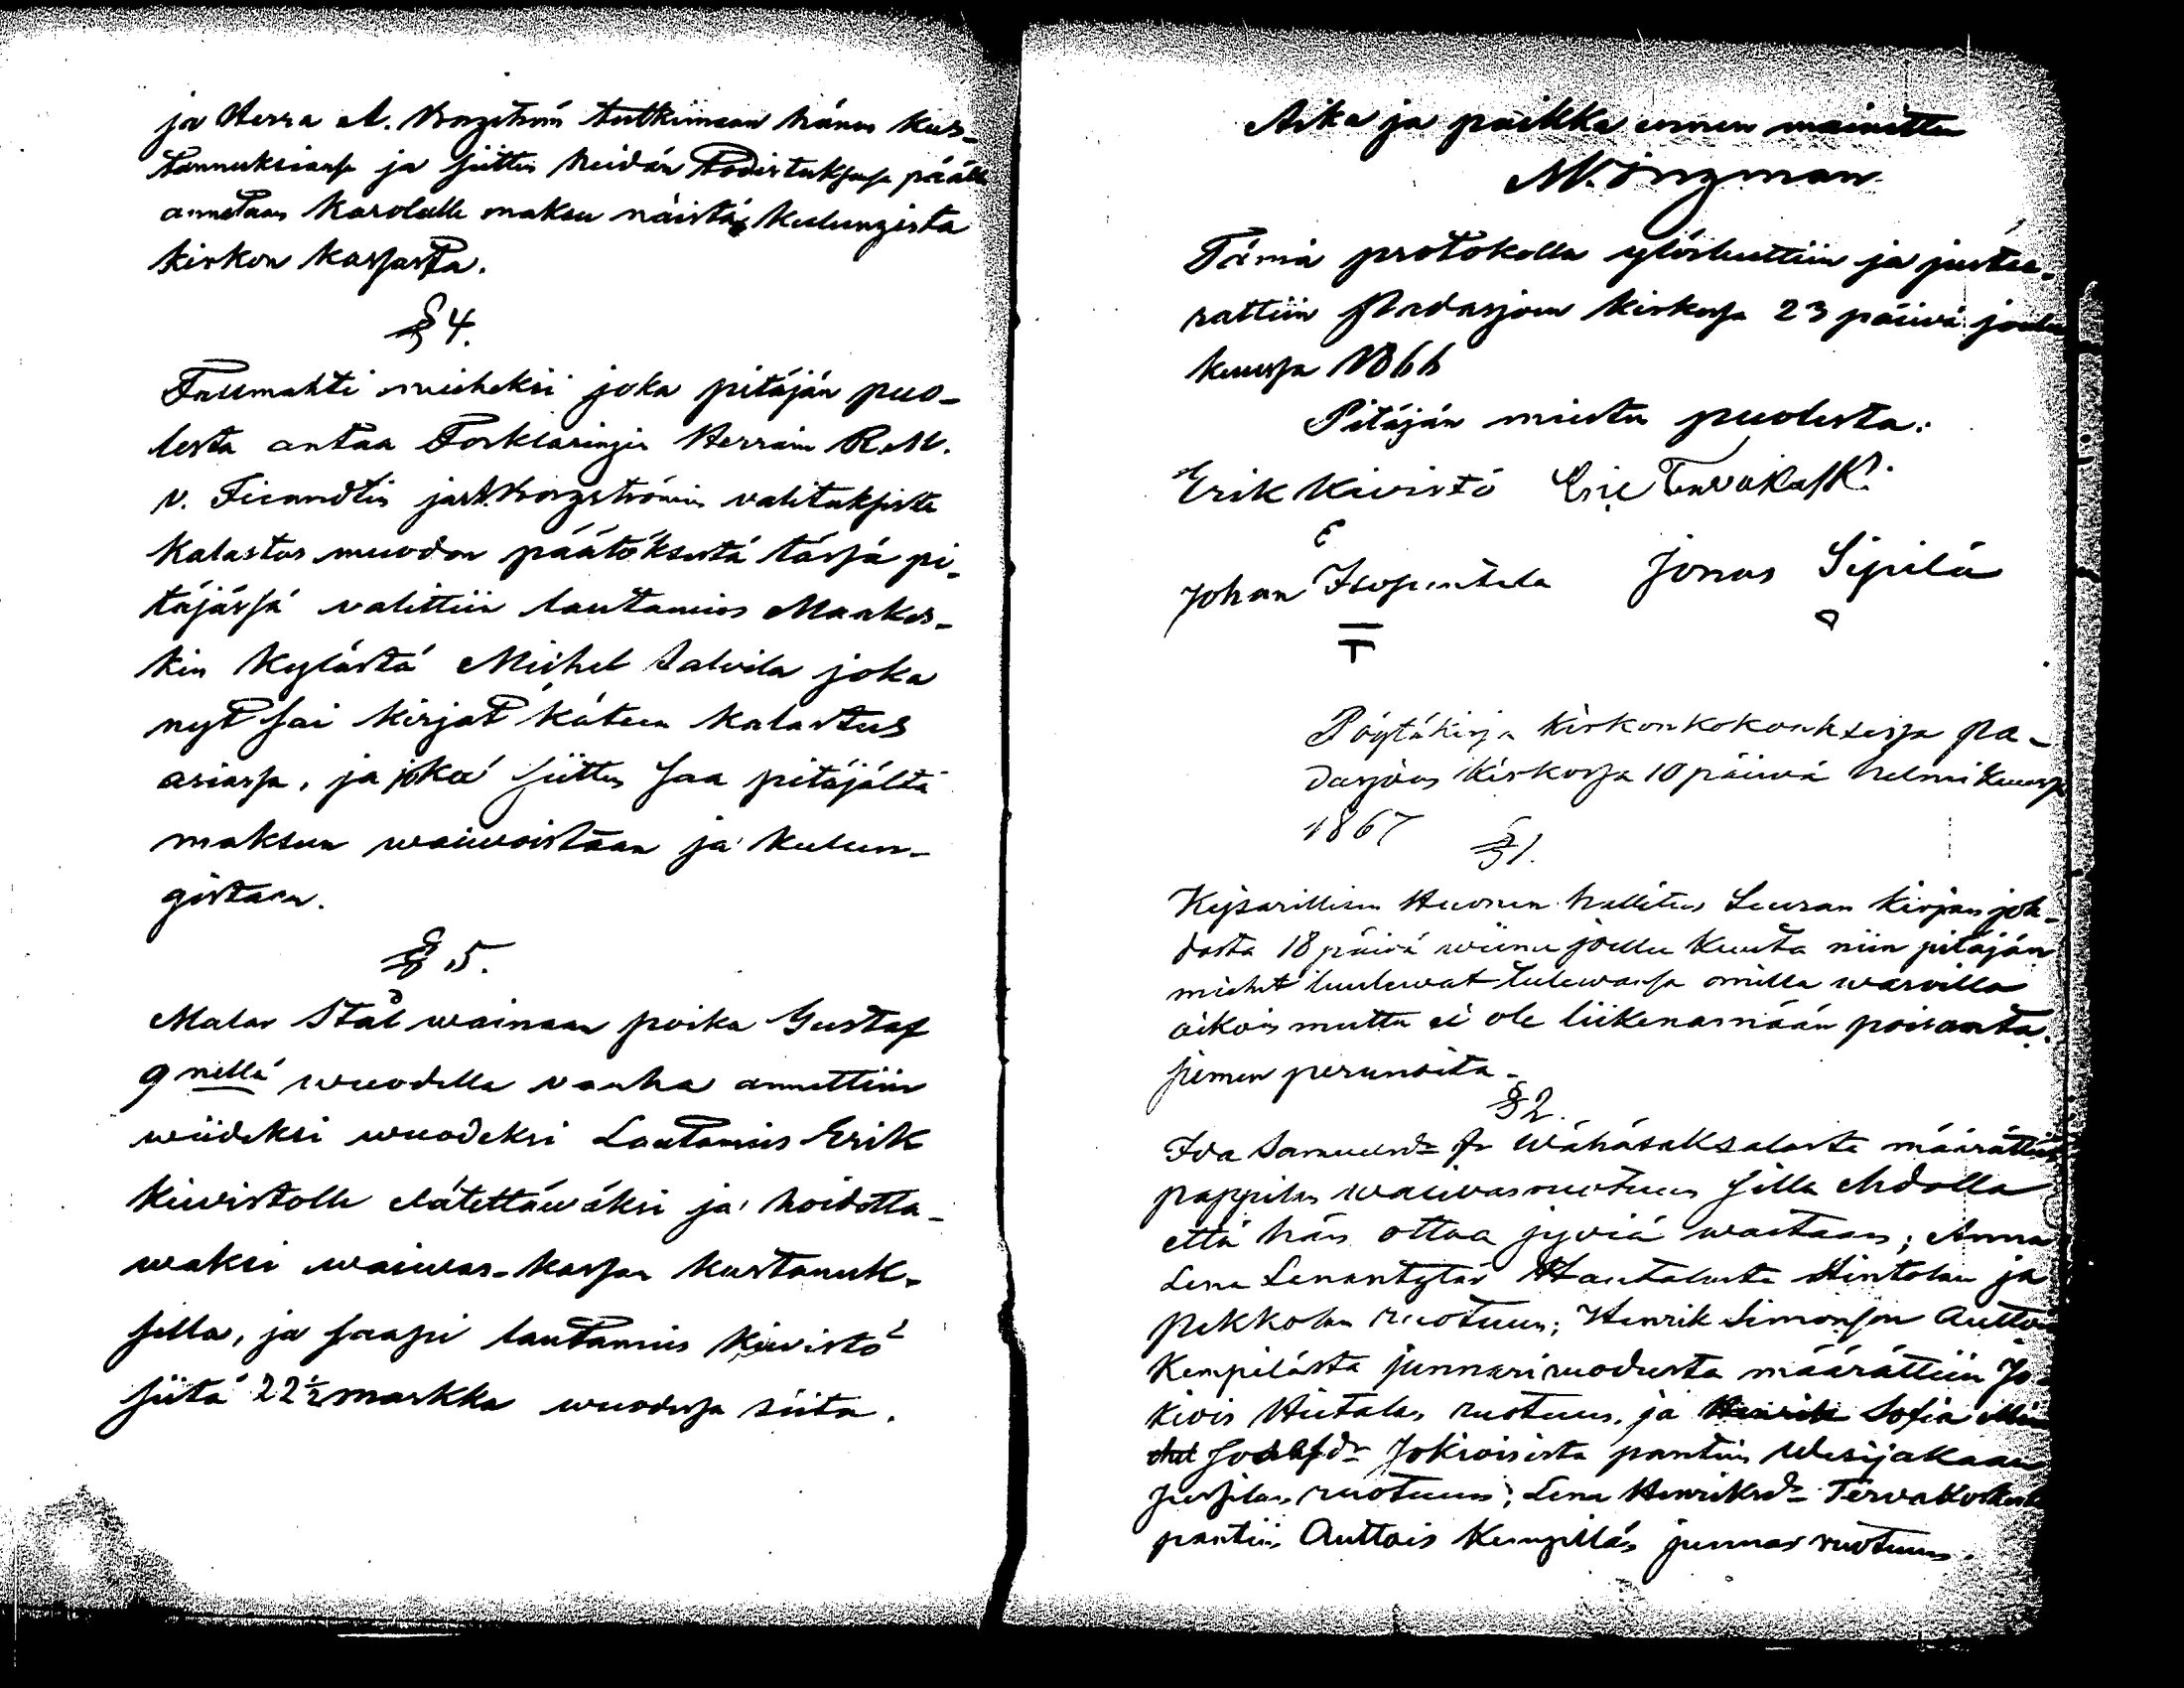 ja Herra A. Borgström tutkimaan hänen kus-
tannuksiansa ja sitten heidän todistuksensa päälle
annetaan Karolalle maksu näistä kulungista
kirkon kassasta.
§ 4.
Fullmahti mieheksi joka pitäjän puo-
lesta antaa Forklaringin Herrain R. M.
v. Fieandtin ja A. Borgströmin valituksista
Kalastus muodon päätöksestä tässä pi-
täjässä valittiin lautamies Maakes-
kin kylästä Michel Salvila joka
nyt sai kirjat käteen kalastus
asiassa, ja joka sitten saa pitäjältä
maksun waiwoistaan ja kulun-
gistaan.
§ 5.
Malar Stål wainaan poika Gustaf
9 nellä wuodella vanha annettiin
wiideksi wuodeksi Lautamies Erik
Kiwistölle elätettäwäksi ja hoidetta-
waksi waiwas-kassan kustanuk-
sella, ja saapi lautamies Kiwistö
siitä 22 ½ markka wuodessa siitä.
Aika ja paikka ennen mainittu
M. Ingman
Tämä protokolla ylösluettiin ja justee-
rattiin Padasjoen kirkossa 23 päiwä joulu
kuussa 1866
Pitäjän miesten puolesta:
Erik Kiwistö Eric
Johan Jonas Sipilä
Pöytäkirja kirkonkokouksessa Pa-
dasjoen kirkossa 10 päiwä helmikuussa
1867
§ 1.
Kejsarillisen Huonen hallitus Seuran kirjan joh-
dosta 18 päivä wiime joulu kuuta niin pitäjän
miehet luulewat tulewansa omilla waroilla
aikois mutta ei ole liikenemään poisanta
siemen perunoita-
§ 2.
Ida Samuelsdr Wähäsaksalasta määrättiin
pappilan waiwasruotuun sillä ehdolla
että hän ottaa jyviä wastaan; Anna
Lena Hautalasta Hintolan ja
Pekkolan ruotuun; Henrik Simonson Auttois
Kempilästä junnari ruodusta määrättiin Jo-
kiois Hietalan ruotuun, ja Henrik Sofia
Jokioisista pantiin Wesijakaan
Jussilan ruotuun; Lena Henriksdr Tervakoskelta
pantiin Auttois Kempilän junnar ruotuun.